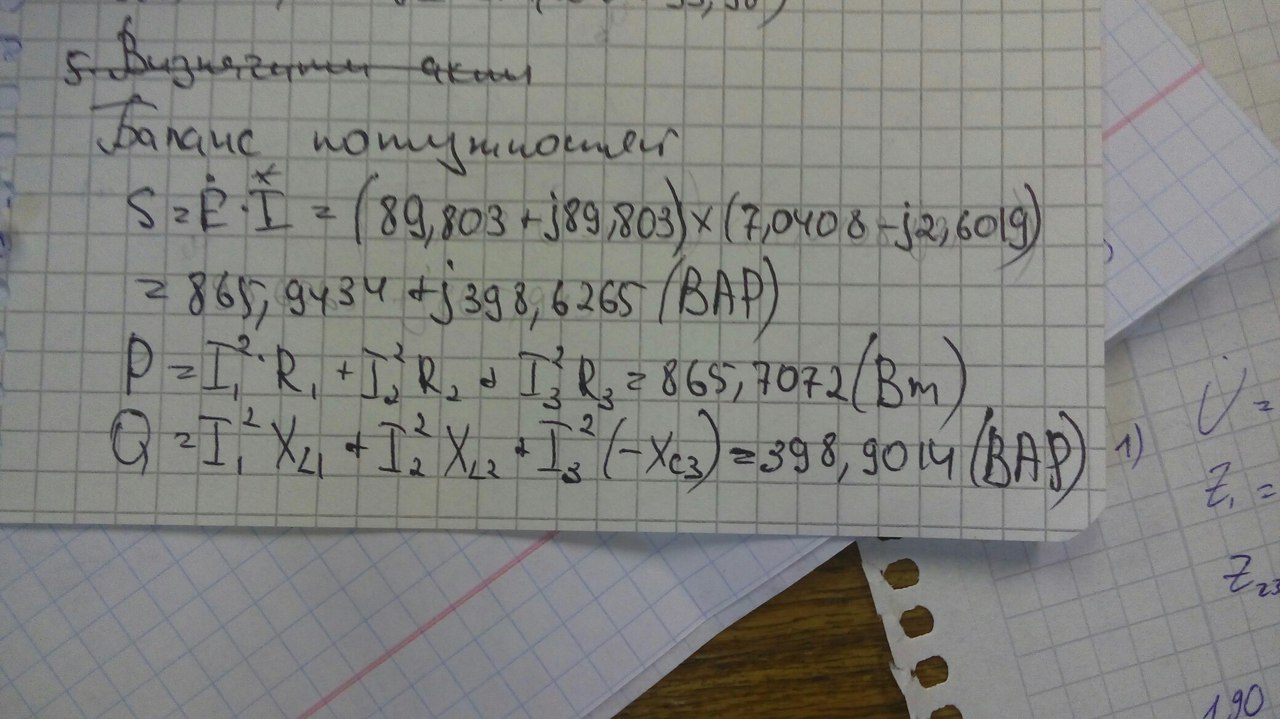 5. Визначити яким
Баланс потужностей
S = Ė · I* = (89,803 + j89,803) × (7,0408 - j2,6019)
= 865,9434 + j398,6265 (ВАР)
P = I₁² · R₁ + I₂² R₂ + I₃² R₃ = 865,7072 (Вт)
Q = I₁² X_L1 + I₂² X_L2 + I₃² (-X_C3) = 398,9014 (ВАР)
1)
U̇ =
Z₁ =
Z₂₃
190